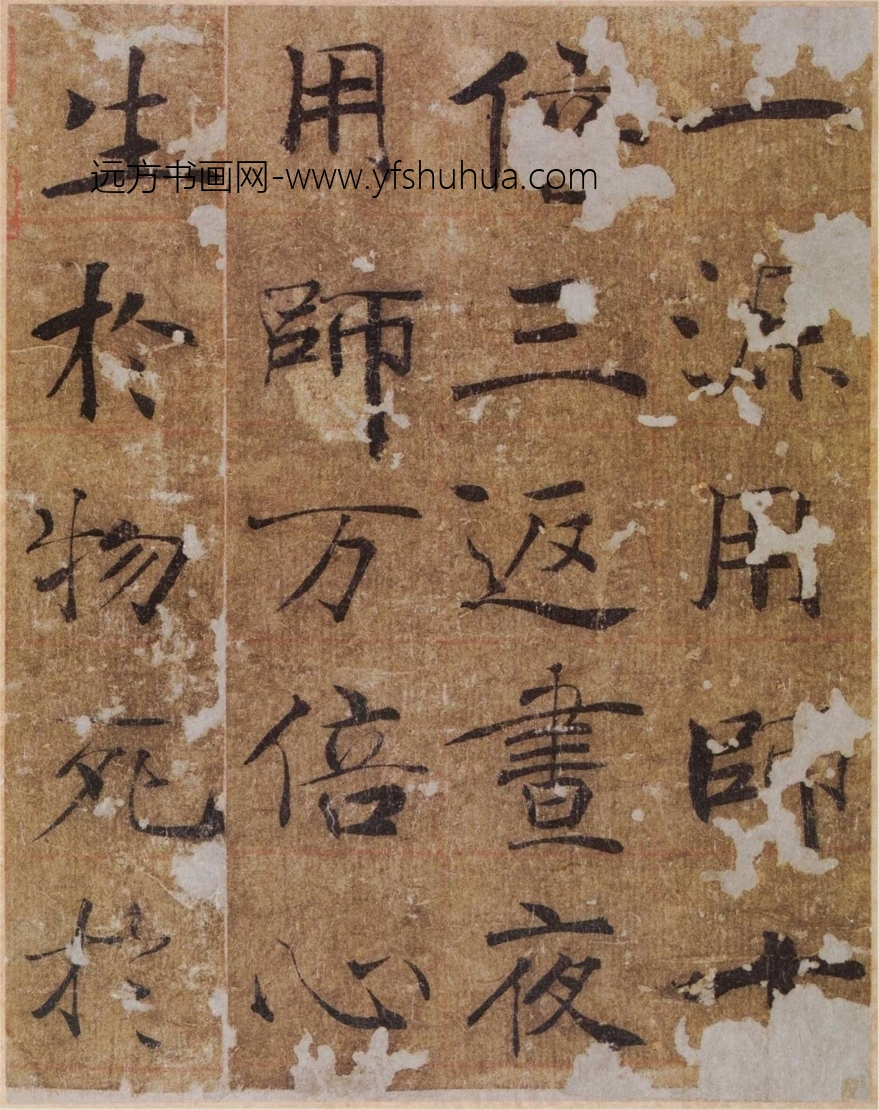 一源用師十
倍三返晝夜
用師万倍心
生於物死於
远方书画网-www.yfshuhua.com